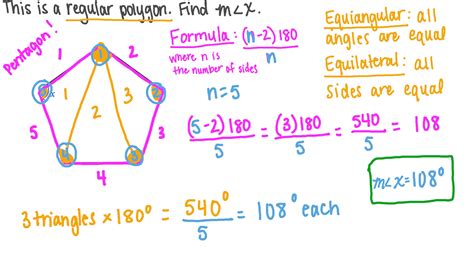 This is a regular polygon. Find m∠x.
Pentagon!
1 2
1 2 3
5 3
4
Formula: (n-2)180
n
where n is
the number of sides
n=5
Equiangular: all
angles are equal
Equilateral: all
sides are equal
(5-2)180 = (3)180 = 540 = 108
5 5 5
m∠x=108°
3 triangles × 180° = 540° = 108° each
5